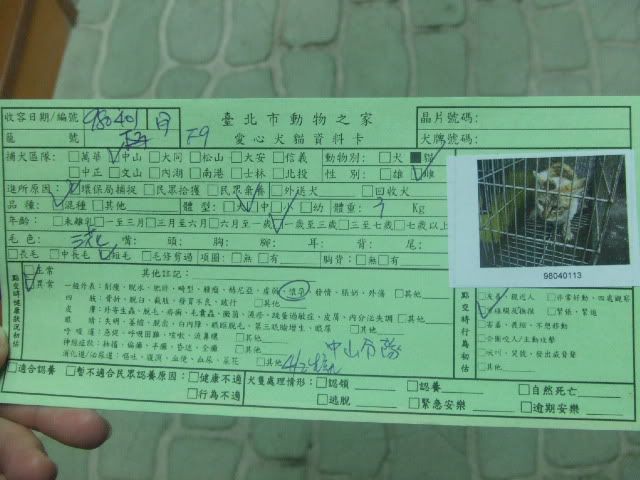 收容日期/編號 980401 臺北市動物之家 晶片號碼:
籠 號 F9 愛心犬貓資料卡 犬牌號碼:
捕犬區隊: □萬華 □中山 □大同 □松山 □大安 □信義 動物別: □犬 ■貓
□中正 □文山 □內湖 □南港 □士林 □北投 性別: □雄 □雌
進所原因: □環保局捕捉 □民眾拾獲 □民眾棄養 □外送犬 □回收犬
品種: □混種 □其他 體型: □大 □中 □小 □幼 體重: 3 Kg
年齡: □未離乳 □一至三月 □三月至六月 □六月至一歲 □一歲至三歲 □三至七歲 □七歲以上
毛色: 三花 嘴: 頭: 胸: 腳: 耳: 背: 尾:
□長毛 □中長毛 □短毛 □毛修剪過 項圈: □無 □有 胸背: □無 □有
98040113
點交時健康狀況初估 □正常 其他註記:
□異常 一般外表: 削瘦、脫水、肥胖、畸型、腫瘤、 虛弱、懷孕、發情、脹奶、外傷 □其他
四 肢: 骨折、脫臼、截肢、發育不良、跛行 □其他
皮 膚: 外寄生蟲、脫毛、 □其他
眼 睛: 失明、 白內障、 □其他
呼吸道: 呼吸困難、咳嗽、流鼻膿 □其他
神經症狀: 抽搐、偏癱、 昏迷、全癱 □其他
消化道/泌尿道: 嘔吐、腹瀉、血便、血尿、 □其他
中山分隊
點交時行為初估 □友善、親近人 □非常好動、四處觀察
□緊張、緊迫
□害羞、畏縮、不想移動
□企圖咬人/主動攻擊
□吠叫、哭號、發出威脅聲
□其他
□適合認養 □暫不適合民眾認養原因: □健康不適 犬隻處理情形: □認領 □認養 □自然死亡
□行為不適 □逃脫 □緊急安樂 □逾期安樂